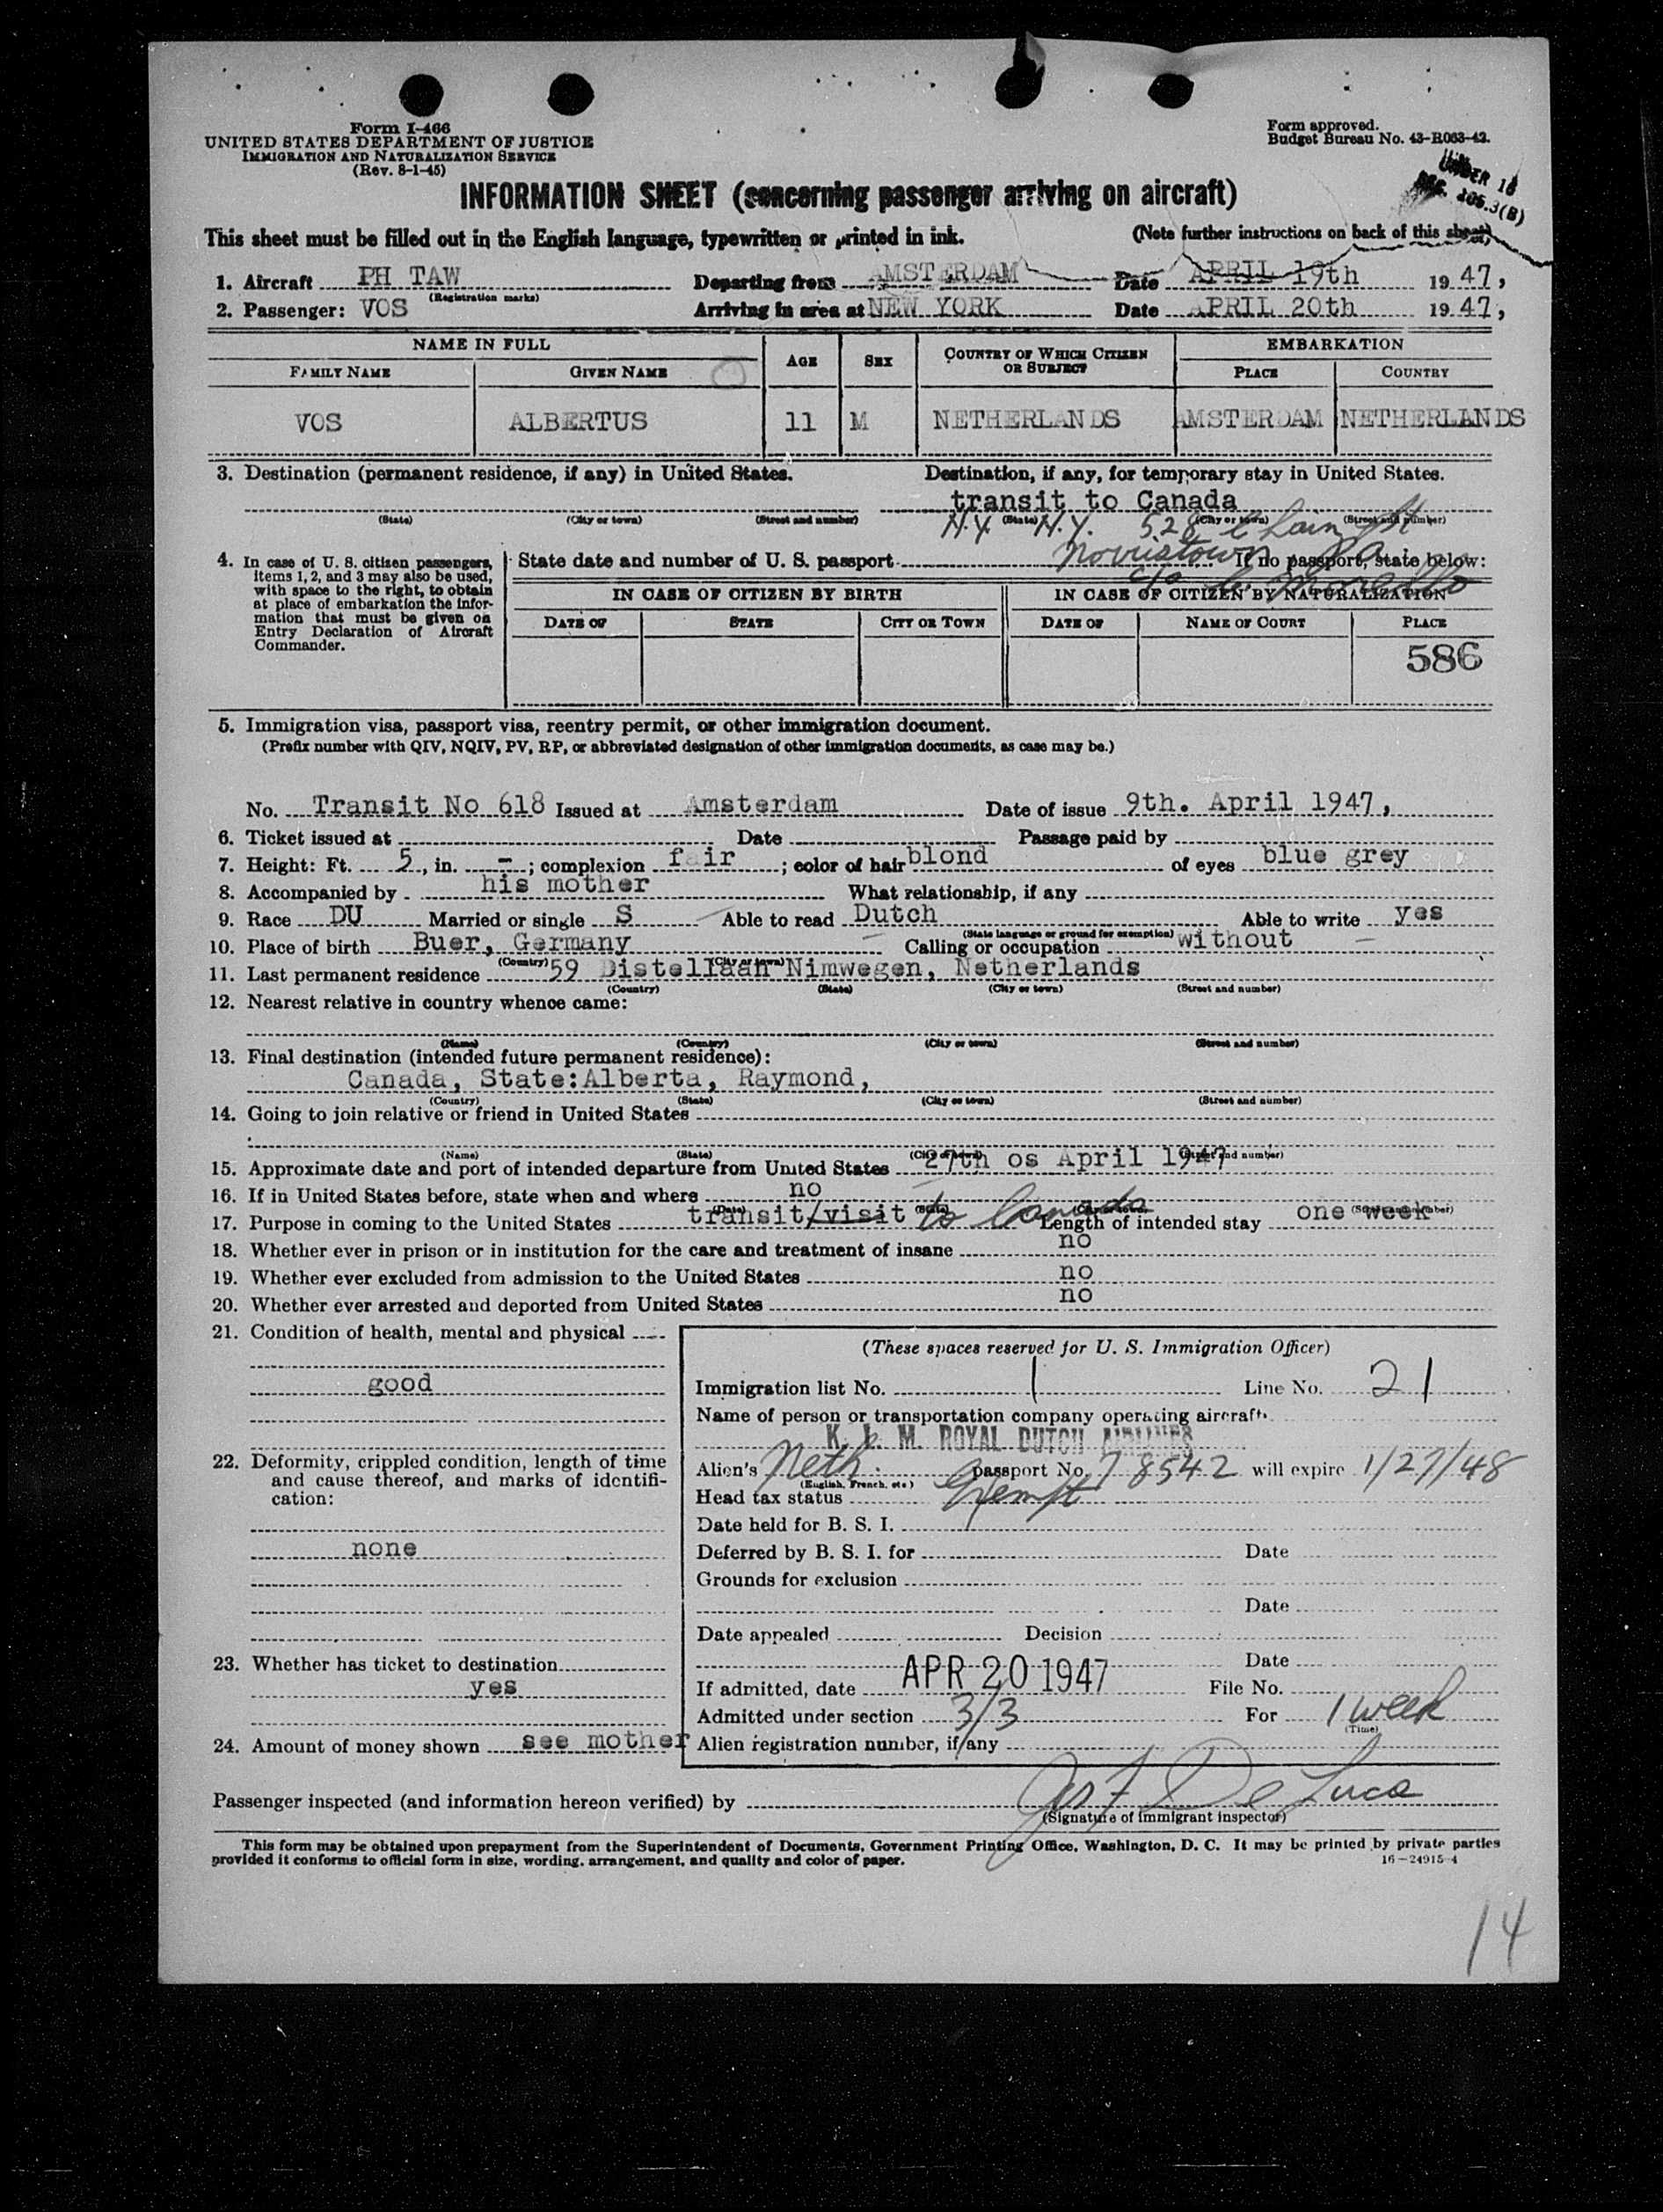 Form I-466
UNITED STATES DEPARTMENT OF JUSTICE
IMMIGRATION AND NATURALIZATION SERVICE
(Rev. 8-1-45)
Form approved.
Budget Bureau No. 43-R063-42.
UNDER 16
INFORMATION SHEET (concerning passenger arriving on aircraft)
This sheet must be filled out in the English language, typewritten or printed in ink. (Note further instructions on back of this sheet)
1. Aircraft PH TAW Departing from AMSTERDAM Date APRIL 19th 19 47,
(Registration marks)
2. Passenger: VOS Arriving in area at NEW YORK Date APRIL 20th 19 47,
NAME IN FULL AGE SEX COUNTRY OF WHICH CITIZEN OR SUBJECT EMBARKATION
FAMILY NAME GIVEN NAME PLACE COUNTRY
VOS ALBERTUS 11 M NETHERLANDS AMSTERDAM NETHERLANDS
3. Destination (permanent residence, if any) in United States. Destination, if any, for temporary stay in United States.
transit to Canada
(State) (City or town) (Street and number) (State) (City or town) (Street and number)
N.Y. N.Y. 528 St
Norristown Pa
c/o
4. In case of U. S. citizen passengers, items 1, 2, and 3 may also be used, with space to the right, to obtain at place of embarkation the information that must be given on Entry Declaration of Aircraft Commander.
State date and number of U. S. passport If no passport, state below:
IN CASE OF CITIZEN BY BIRTH IN CASE OF CITIZEN BY NATURALIZATION
DATE OF STATE CITY OR TOWN DATE OF NAME OF COURT PLACE
586
5. Immigration visa, passport visa, reentry permit, or other immigration document.
(Prefix number with QIV, NQIV, PV, RP, or abbreviated designation of other immigration documents, as case may be.)
No. Transit No 618 Issued at Amsterdam Date of issue 9th. April 1947,
6. Ticket issued at Date Passage paid by
7. Height: Ft. 5, in. - ; complexion fair ; color of hair blond of eyes blue grey
8. Accompanied by his mother What relationship, if any
9. Race DU Married or single S Able to read Dutch Able to write yes
(State language or ground for exemption)
10. Place of birth Buer, Germany Calling or occupation without
(Country) (City or town)
11. Last permanent residence 59 Distellaan Nimwegen, Netherlands
(Country) (State) (City or town) (Street and number)
12. Nearest relative in country whence came:
(Name) (Country) (City or town) (Street and number)
13. Final destination (intended future permanent residence):
Canada, State:Alberta, Raymond,
(Country) (State) (City or town) (Street and number)
14. Going to join relative or friend in United States
(Name) (State) (City or town) (Street and number)
15. Approximate date and port of intended departure from United States 27th os April 1947
16. If in United States before, state when and where no
(Date) (State) (City or town) (Street and number)
17. Purpose in coming to the United States transit/visit to Canada Length of intended stay one week
18. Whether ever in prison or in institution for the care and treatment of insane no
19. Whether ever excluded from admission to the United States no
20. Whether ever arrested and deported from United States no
21. Condition of health, mental and physical
good
22. Deformity, crippled condition, length of time and cause thereof, and marks of identification:
none
23. Whether has ticket to destination
yes
24. Amount of money shown see mother
(These spaces reserved for U. S. Immigration Officer)
Immigration list No. 1 Line No. 21
Name of person or transportation company operating aircraft
K. L. M. ROYAL DUTCH AIRLINES
Alien's Neth. passport No. 78542 will expire 1/27/48
(English, French, etc.)
Head tax status Exempt
Date held for B. S. I.
Deferred by B. S. I. for Date
Grounds for exclusion
Date
Date appealed Decision
Date
If admitted, date APR 20 1947 File No.
Admitted under section 3/3 For 1 week
(Time)
Alien registration number, if any
Passenger inspected (and information hereon verified) by Jos F De Luca
(Signature of immigrant inspector)
This form may be obtained upon prepayment from the Superintendent of Documents, Government Printing Office, Washington, D. C. It may be printed by private parties
provided it conforms to official form in size, wording, arrangement, and quality and color of paper. 16-24915-4
14